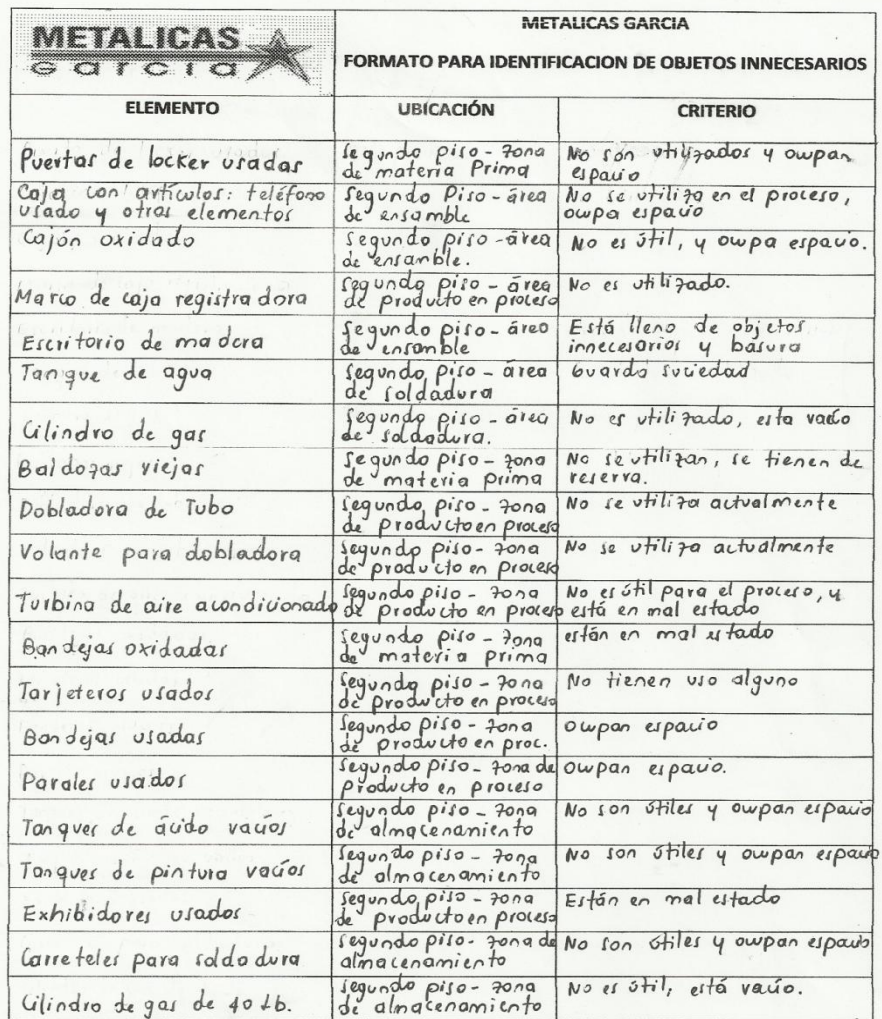 METALICAS
Garcia
METALICAS GARCIA
FORMATO PARA IDENTIFICACION DE OBJETOS INNECESARIOS
ELEMENTO
UBICACIÓN
CRITERIO
Puertas de locker usadas
segundo piso - zona
de materia Prima
No son utilizados y ocupan
espacio
Caja con artículos: teléfono
usado y otros elementos
Segundo Piso - área
de ensamble
No se utiliza en el proceso,
ocupa espacio
Cajón oxidado
Segundo piso - área
de ensamble.
No es útil, y ocupa espacio.
Marco de caja registradora
Segundo piso - área
de producto en proceso
No es utilizado.
Escritorio de madera
Segundo piso - área
de ensamble
Está lleno de objetos
innecesarios y basura
Tanque de agua
Segundo piso - área
de soldadura
Guarda suciedad
Cilindro de gas
Segundo piso - área
de soldadura.
No es utilizado, esta vacío
Baldozas viejas
Segundo piso - zona
de materia prima
No se utilizan, se tienen de
reserva.
Dobladora de Tubo
Segundo piso - zona
de producto en proceso
No se utiliza actualmente
Volante para dobladora
Segundo piso - zona
de producto en proceso
No se utiliza actualmente
Turbina de aire acondicionado
Segundo piso - zona
de producto en proceso
No es útil para el proceso, y
está en mal estado
Bandejas oxidadas
Segundo piso - zona
de materia prima
están en mal estado
Tarjeteros usados
Segundo piso - zona
de producto en proceso
No tienen uso alguno
Bandejas usadas
Segundo piso - zona
de producto en proc.
Ocupan espacio
Parales usados
Segundo piso - zona de
producto en proceso
Ocupan espacio.
Tanques de ácido vacíos
Segundo piso - zona
de almacenamiento
No son útiles y ocupan espacio
Tanques de pintura vacíos
Segundo piso - zona
de almacenamiento
No son útiles y ocupan espacio
Exhibidores usados
Segundo piso - zona
de producto en proceso
Están en mal estado
Carreteles para soldadura
Segundo piso - zona de
almacenamiento
No son útiles y ocupan espacio
Cilindro de gas de 40 Lb.
Segundo piso - zona
de almacenamiento
No es útil, está vacío.